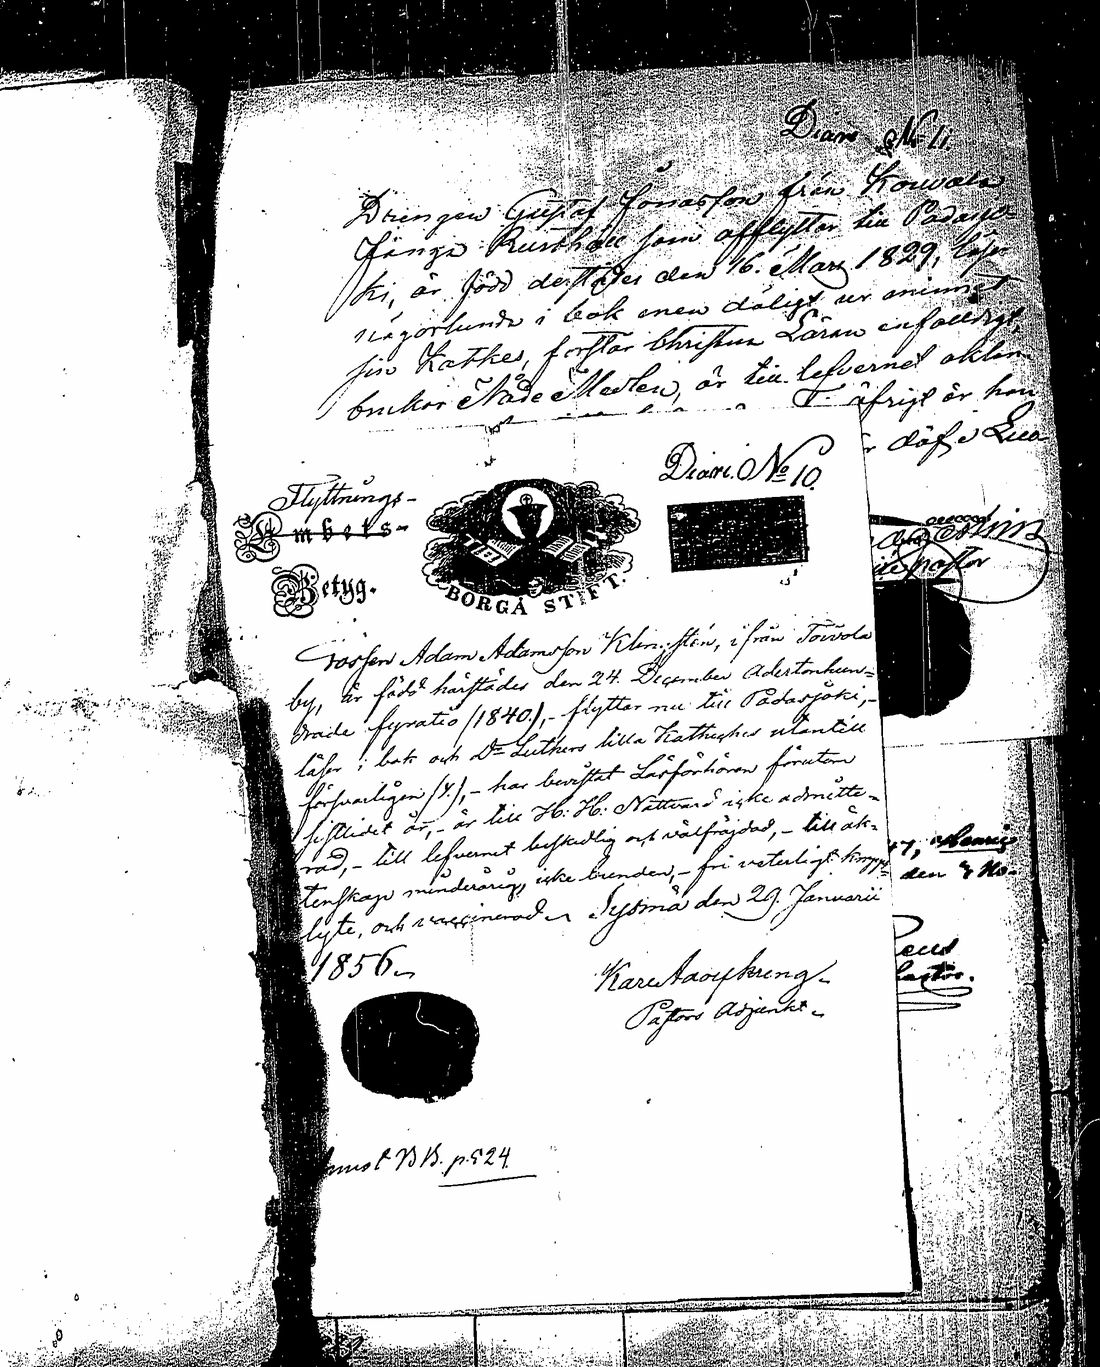 Diari No 11.
Drengen Gustaf Jonasson från Kouvola
Rusthåll som afflyttar till Padasjo-
ki, är född derstädes den 16. Mars 1829, läser
någorlunda i bok men dåligt ur minnet
sin Katkes, förstår Christna Läran enfaldigt,
brukar Nåde Medlen, är till lefvernet oklan-
öfrigt är han
döf
pastor
Diari. No 10.
Flyttnings-
Embets-
Betyg.
BORGÅ STIFT.
Gossen Adam Adamsson, ifrån Toivola
by, är född härstädes den 24. December Adertonhun-
drade fyratio (1840.),- flyttar nu till Padasjoki,-
läser i bok och Dr Luthers lilla Kateches utantill
försvarligen (/.),- har bevistat Läsförhören förutom
sistlidet år,- är till H: H: Nattvard icke admitte-
rad,- till lefvernet beskedlig och välfrejdad,- till äk-
tenskap minderårig, icke bunden,- fri veterligt
lyte, och vaccinerad Sysmä den 29. Januarii
1856.
Pastors Adjunkt.
47, Henric
den 4 No-
Pastor.
B B. p. 524